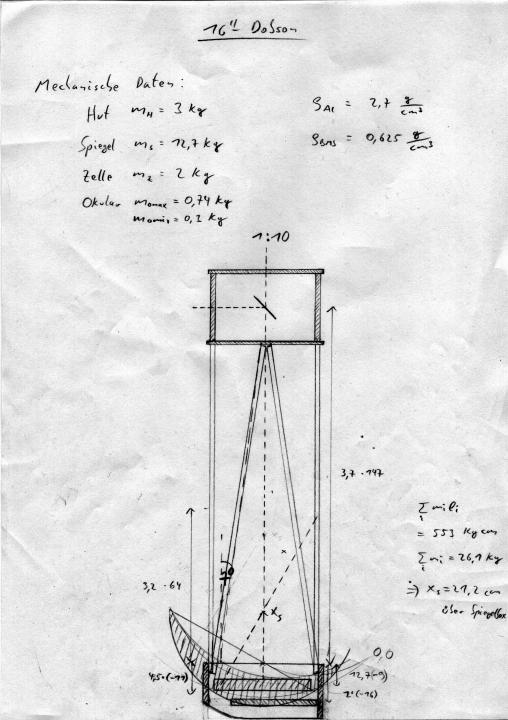 16" Dobson
Mechanische Daten:
Hut mH = 3 kg
Spiegel ms = 12,7 kg
Zelle mz = 2 kg
Okular momax = 0,74 kg
momin = 0,1 kg
ρAl = 2,7 g/cm³
ρBMS = 0,625 g/cm³
1:10
3,7 · 147
Σi mili
= 553 kg cm
Σi mi = 26,1 kg
⇒ xs = 21,2 cm
über Spiegelbox
3,2 · 64
xs
0,0
4,5·(-11)
12,7(-9)
2·(-16)